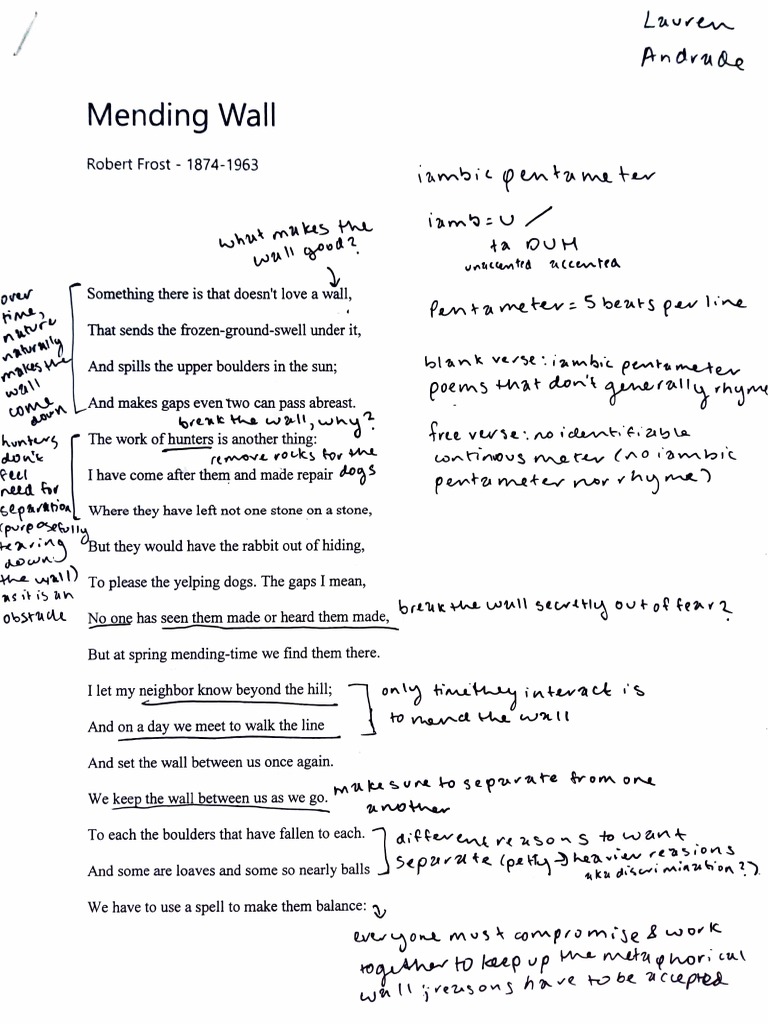 Lauren
Andrade
Mending Wall
Robert Frost - 1874-1963
iambic pentameter
iamb = U /
ta DUH
unaccented accented
Pentameter = 5 beats per line
blank verse: iambic pentameter
poems that don't generally rhyme
free verse: no identifiable
continous meter (no iambic
pentameter nor rhyme)
what makes the
wall good?
over
time,
nature
naturally
makes the
wall
come
down
Something there is that doesn't love a wall,
That sends the frozen-ground-swell under it,
And spills the upper boulders in the sun;
And makes gaps even two can pass abreast.
break the wall, why?
hunters
don't
feel
need for
separation
(purposefully
tearing
down
the wall)
as it is an
obstacle
The work of hunters is another thing:
remove rocks for the
dogs
I have come after them and made repair
Where they have left not one stone on a stone,
But they would have the rabbit out of hiding,
To please the yelping dogs. The gaps I mean,
No one has seen them made or heard them made,
break the wall secretly out of fear?
But at spring mending-time we find them there.
I let my neighbor know beyond the hill;
And on a day we meet to walk the line
only time they interact is
to mend the wall
And set the wall between us once again.
We keep the wall between us as we go.
make sure to separate from one
another
To each the boulders that have fallen to each.
And some are loaves and some so nearly balls
different reasons to want
separate (petty → heavier reasions
aka discrimination?).
We have to use a spell to make them balance:
everyone must compromise & work
together to keep up the metaphorical
wall; reasons have to be accepted